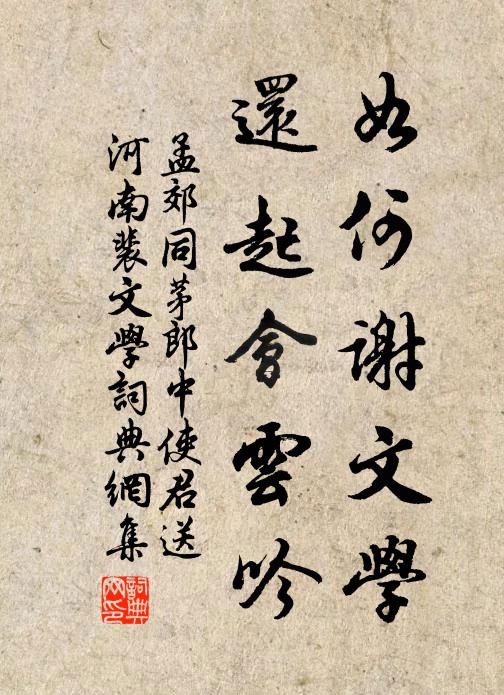 如何謝文學
還起會雲吟
孟郊同茅郎中使君送
河南裴文學詞典網集
詞典網印